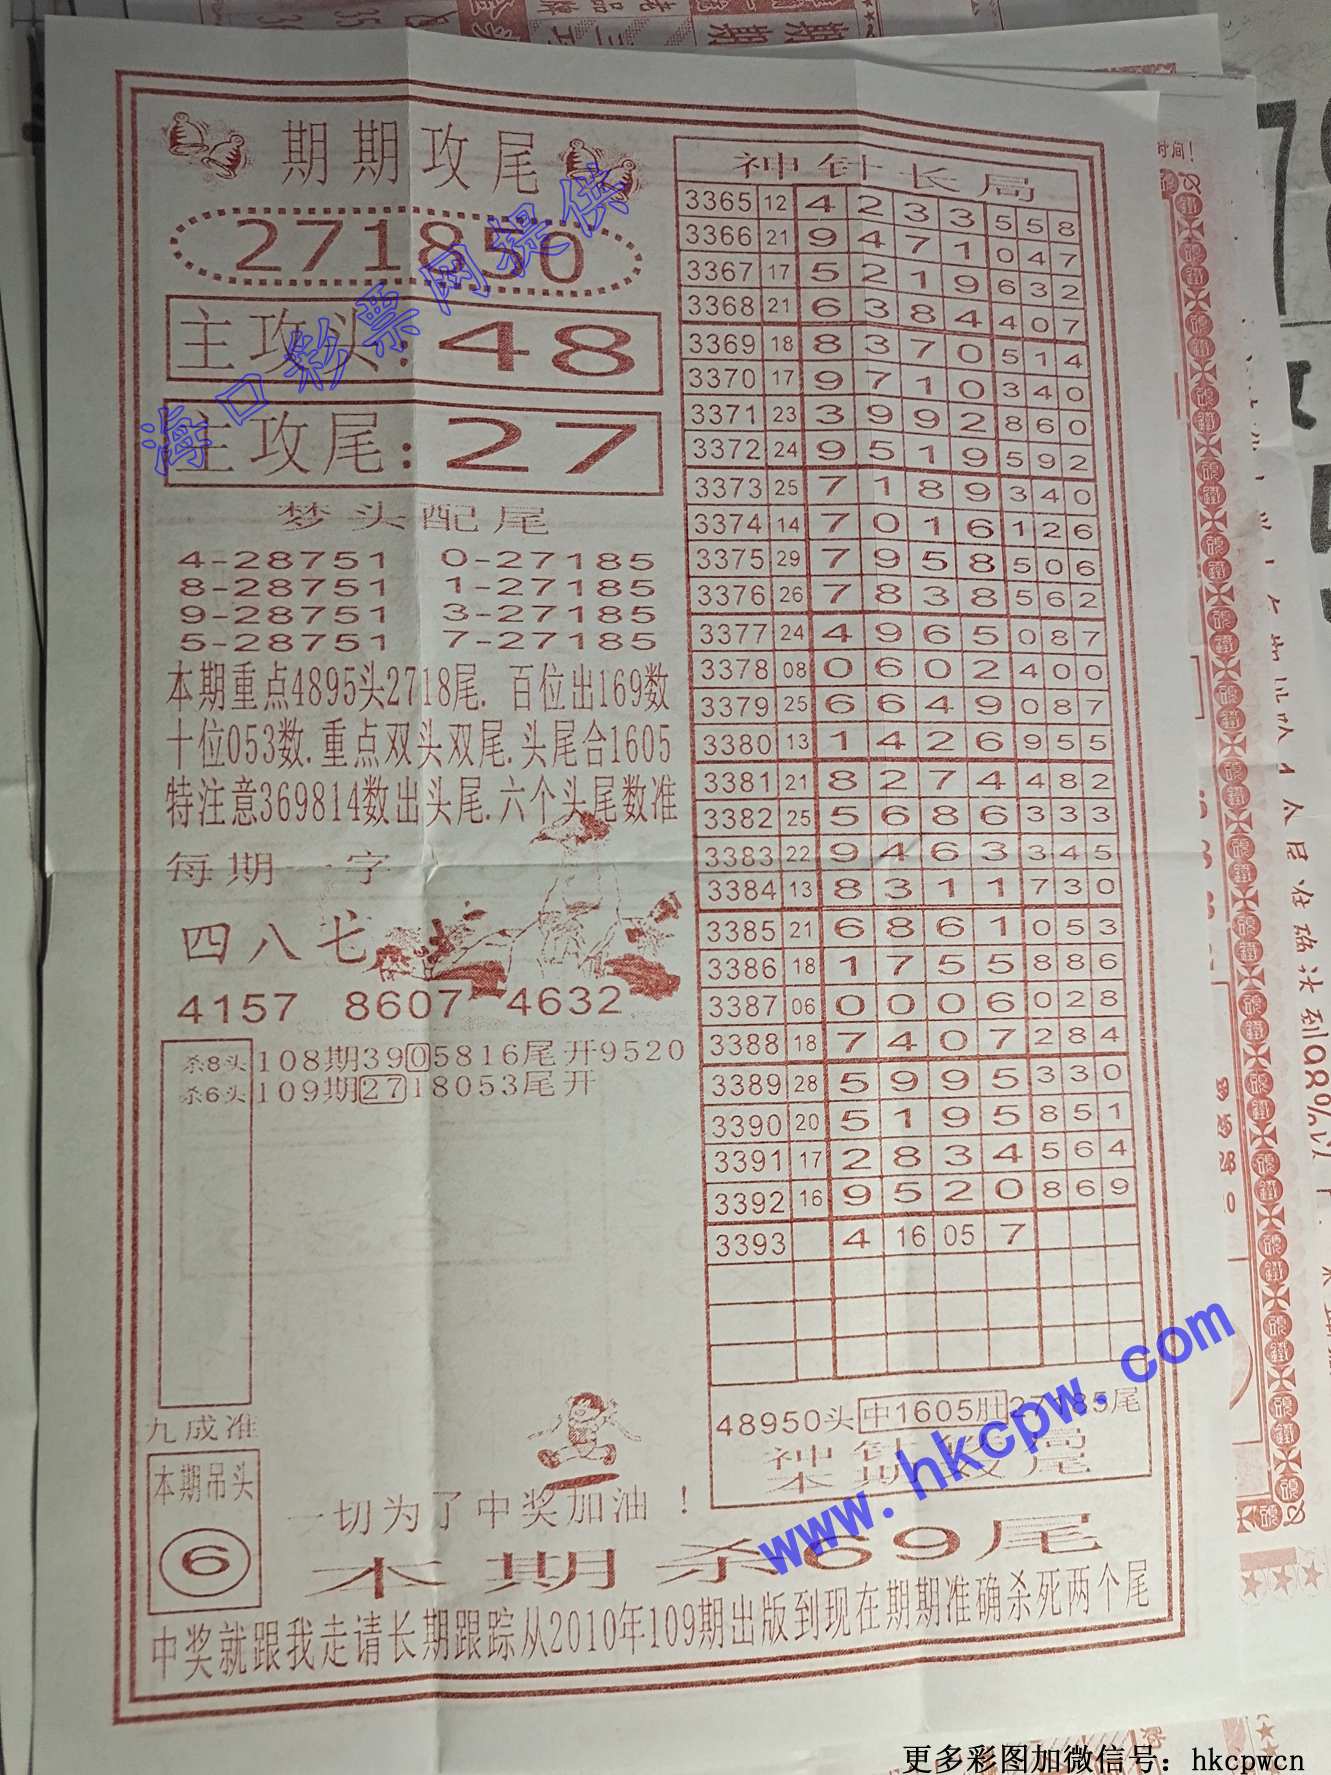 期期攻尾
271850
主攻头:48
主攻尾:27
梦头配尾
4-28751 0-27185
8-28751 1-27185
9-28751 3-27185
5-28751 7-27185
本期重点4895头2718尾. 百位出169数
十位053数.重点双头双尾.头尾合1605
特注意369814数出头尾.六个头尾数准
每期一字
四八七
4157 8607 4632
杀8头 108期3905816尾开9520
杀6头 109期2718053尾开
九成准
本期吊头
6
一切为了中奖加油！
神针长局
3365 12 4 2 3 3 5 5 8
3366 21 9 4 7 1 0 4 7
3367 17 5 2 1 9 6 3 2
3368 21 6 3 8 4 4 0 7
3369 18 8 3 7 0 5 1 4
3370 17 9 7 1 0 3 4 0
3371 23 3 9 9 2 8 6 0
3372 24 9 5 1 9 5 9 2
3373 25 7 1 8 9 3 4 0
3374 14 7 0 1 6 1 2 6
3375 29 7 9 5 8 5 0 6
3376 26 7 8 3 8 5 6 2
3377 24 4 9 6 5 0 8 7
3378 08 0 6 0 2 4 0 0
3379 25 6 6 4 9 0 8 7
3380 13 1 4 2 6 9 5 5
3381 21 8 2 7 4 4 8 2
3382 25 5 6 8 6 3 3 3
3383 22 9 4 6 3 3 4 5
3384 13 8 3 1 1 7 3 0
3385 21 6 8 6 1 0 5 3
3386 18 1 7 5 5 8 8 6
3387 06 0 0 0 6 0 2 8
3388 18 7 4 0 7 2 8 4
3389 28 5 9 9 5 3 3 0
3390 20 5 1 9 5 8 5 1
3391 17 2 8 3 4 5 6 4
3392 16 9 5 2 0 8 6 9
3393 4 16 05 7
48950头 中1605肚 27185尾
神针长局
本期杀尾
本期杀69尾
中奖就跟我走请长期跟踪从2010年109期出版到现在期期准确杀死两个尾
海口彩票网提供
www.hkcpw.com
更多彩图加微信号：hkcpwcn